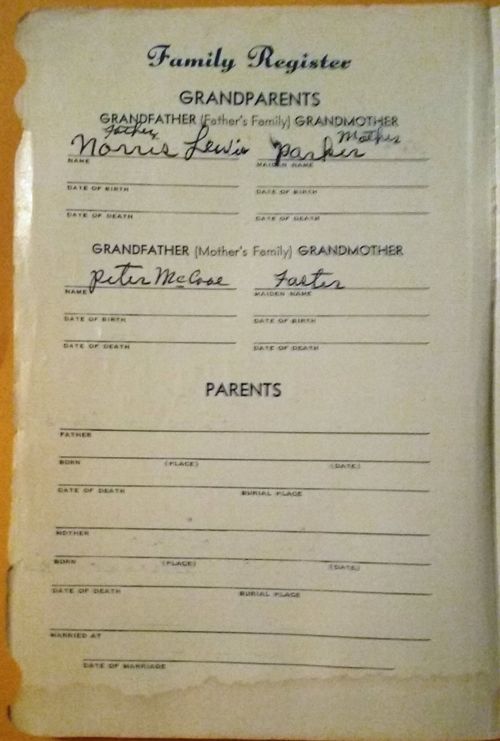 Family Register
GRANDPARENTS
GRANDFATHER (Father's Family) GRANDMOTHER
Father Mother
Norris Lewis Parker
NAME MAIDEN NAME
DATE OF BIRTH DATE OF BIRTH
DATE OF DEATH DATE OF DEATH
GRANDFATHER (Mother's Family) GRANDMOTHER
Peter McCooe Foster
NAME MAIDEN NAME
DATE OF BIRTH DATE OF BIRTH
DATE OF DEATH DATE OF DEATH
PARENTS
FATHER
BORN (PLACE) (DATE)
DATE OF DEATH BURIAL PLACE
MOTHER
BORN (PLACE) (DATE)
DATE OF DEATH BURIAL PLACE
MARRIED AT
DATE OF MARRIAGE